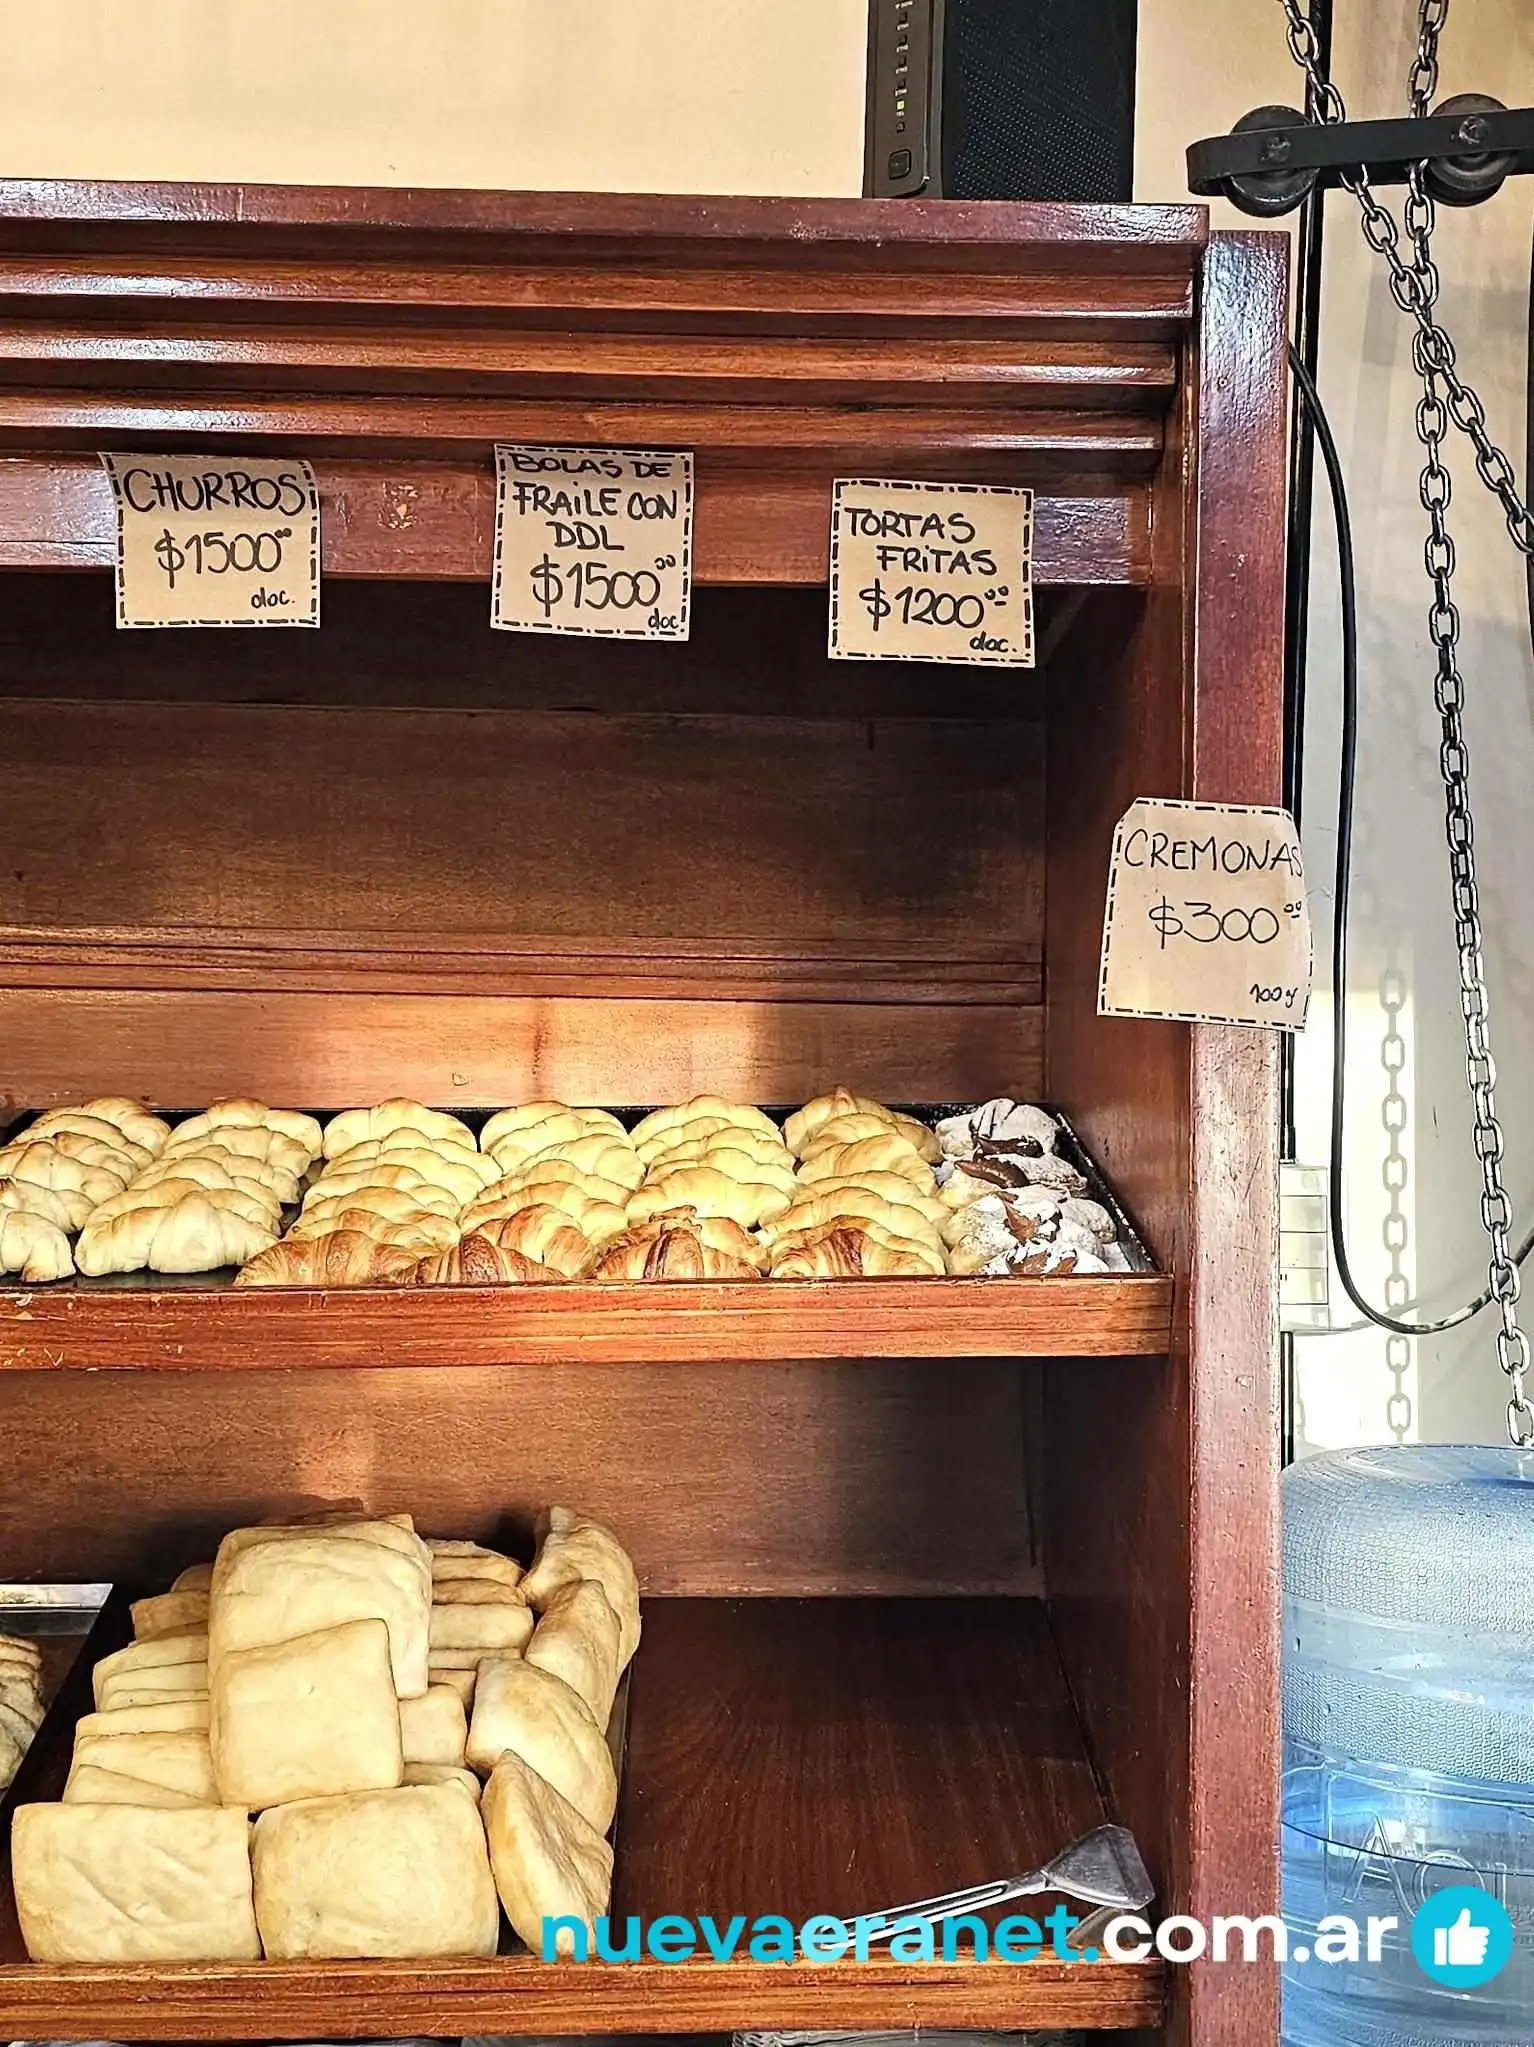 CHURROS
$1500⁰⁰
doc.
BOLAS DE
FRAILE CON
DDL
$1500⁰⁰
doc
TORTAS
FRITAS
$1200⁰⁰
doc.
CREMONAS
$300⁰⁰
100 g
nuevaeranet.com.ar